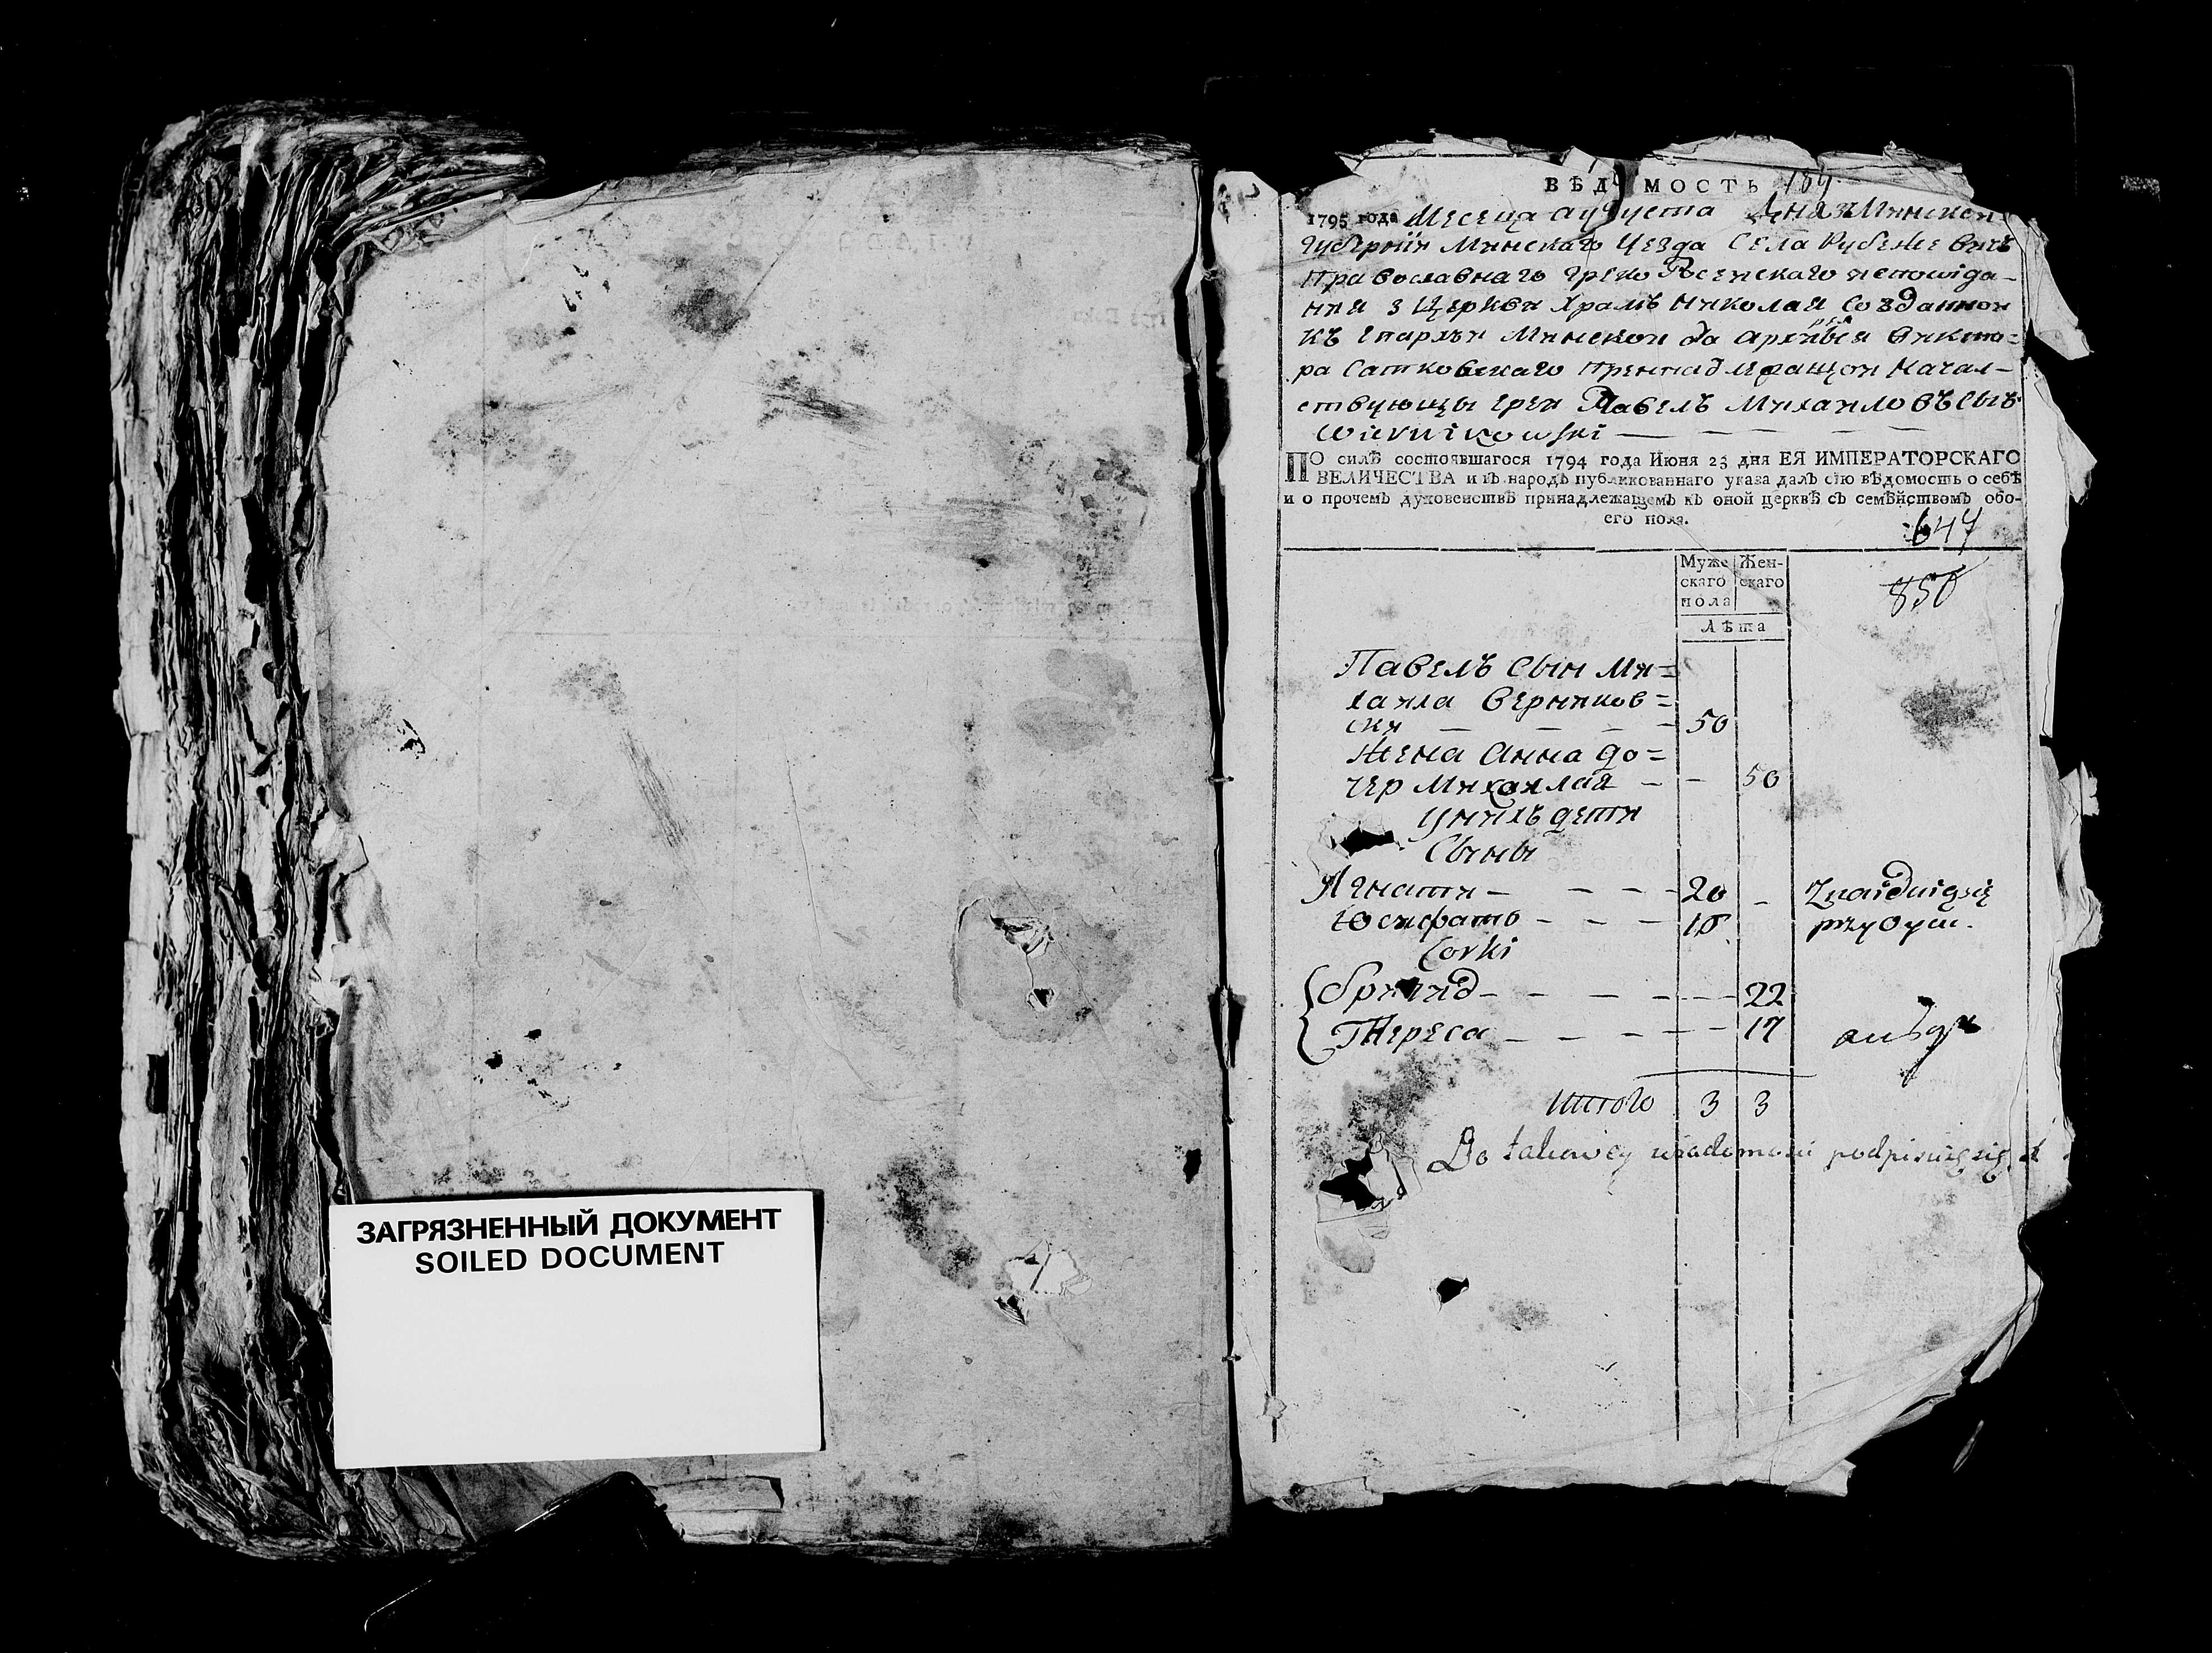 ВѢДОМОСТЬ 184
1795 года Месеца августа дня зъ Минской
Губернии Минскаго Уезда Села Рубежевичъ
Православнаго Греко Росийскаго исповида-
ния з Церкви Храмъ Николая Созданной
Къ Епархъи Минской да архиерея Викто=
ра Садковскаго Принадлежащой Начал-
ствующы ерей Павелъ Михаиловъ сынъ
Wiernikowski
ПО силѣ состоявшагося 1794 года Июня 23 дня ЕЯ ИМПЕРАТОРСКАГО
ВЕЛИЧЕСТВА и въ народъ публикованнаго указа далъ сію вѣдомость о себѣ
и о прочемъ духовенствѣ принадлежащемъ къ оной церквѣ съ семѣйствомъ обо-
его пола.
647
Муже Жен-
скаго скаго
пола
850
Лѣта
Павелъ Сын Ми=
хаила Верников=
ски — — — 50
Жена Анна до=
чер Михаилая — — 50
У нихъ дети
Сыны
Игнати — — — 20 — Znaiduią się
Юсифатъ — — — 18 przy Oycu.
Corki
22
Тереса — — — — 17
Итого 3 3
Do takowey wiadomosci podpisuię się
ЗАГРЯЗНЕННЫЙ ДОКУМЕНТ
SOILED DOCUMENT